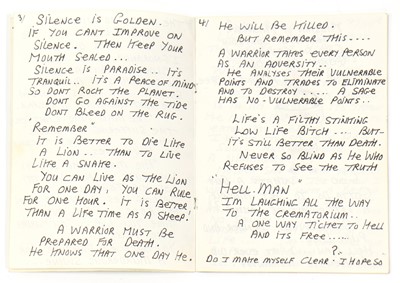 3/
SILENCE IS GOLDEN.
IF YOU CANT IMPROVE ON
SILENCE. THEN KEEP YOUR
MOUTH SEALED...
SILENCE IS PARADISE.. IT'S
TRANQUIL.. IT'S A PEACE OF MIND
SO DONT ROCK THE PLANET.
DONT GO AGAINST THE TIDE
DONT BLEED ON THE RUG.
"REMEMBER"
IT IS BETTER TO DIE LIKE
A LION.. THAN TO LIVE
LIKE A SNAKE.
YOU CAN LIVE AS THE LION
FOR ONE DAY, YOU CAN RULE
FOR ONE HOUR. IT IS BETTER
THAN A LIFE TIME AS A SHEEP!
A WARRIOR MUST BE
PREPARED FOR DEATH.
HE KNOWS THAT ONE DAY HE.
4/
HE WILL BE KILLED.
BUT REMEMBER THIS....
A WARRIOR TAKES EVERY PERSON
AS AN ADVERSITY..
HE ANALYSES THEIR VULNERABLE
POINTS AND TRADES TO ELIMINATE
AND TO DESTROY..... A SAGE
HAS NO. VULNERABLE POINTS..
LIFE'S A FILTHY STINKING
LOW LIFE BITCH.... BUT-
IT'S STILL BETTER THAN DEATH.
NEVER SO BLIND AS HE WHO
REFUSES TO SEE THE TRUTH
"HELL. MAN"
I'M LAUGHING ALL THE WAY
TO THE CREMATORIUM..
A ONE WAY TICKET TO HELL
AND ITS FREE.....
DO I MAKE MYSELF CLEAR? I HOPE SO